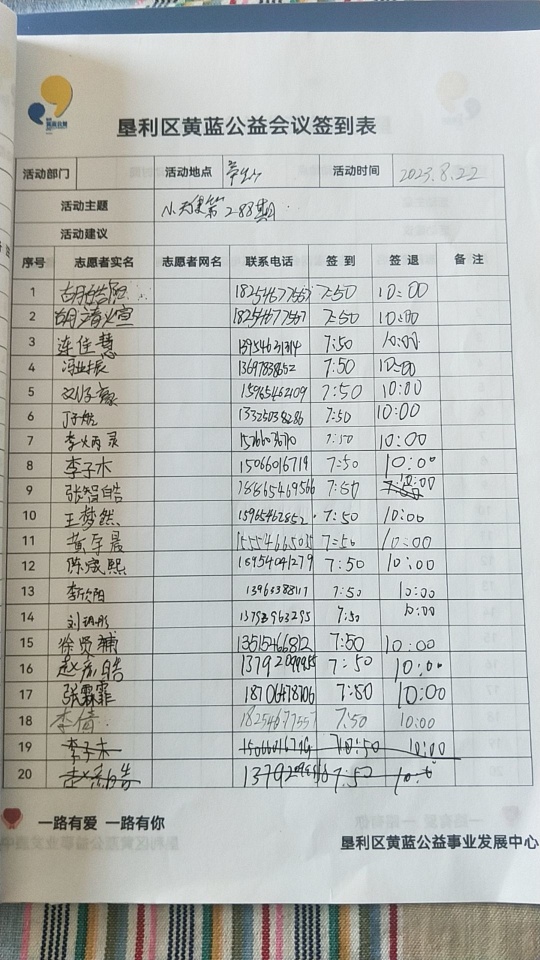 黄蓝公益
垦利区黄蓝公益会议签到表
活动部门 活动地点 活动时间 2023.8.22
活动主题 小天使第288期
活动建议
序号 志愿者实名 志愿者网名 联系电话 签到 签退 备注
1 18254677557 7:50 10:00
2 18254677557 7:50 10:00
3 连佳慧 7:50 10:00
4 冯业振 7:50 10:00
5 15965462109 7:50 10:00
6 13325038286 7:50 10:00
7 李炳灵 7:50 10:00
8 李子木 15066016719 7:50 10:00
9 张智皓 7:50 10:00
10 王梦然 15965462852 7:50 10:00
11 黄宇晨 7:50 10:00
12 陈晟熙 15954091279 7:50 10:00
13 李欣阳 13963388117 7:50 10:00
14 13792963295 7:50 10:00
15 徐贤辅 13515466812 7:50 10:00
16 赵彦皓 13792099955 7:50 10:00
17 张霖霏 18706478706 7:50 10:00
18 李倩 18254677557 7:50 10:00
19 李子木 15066016719 10:50 10:00
20 赵彦皓 7:50 10:0
一路有爱 一路有你
垦利区黄蓝公益事业发展中心